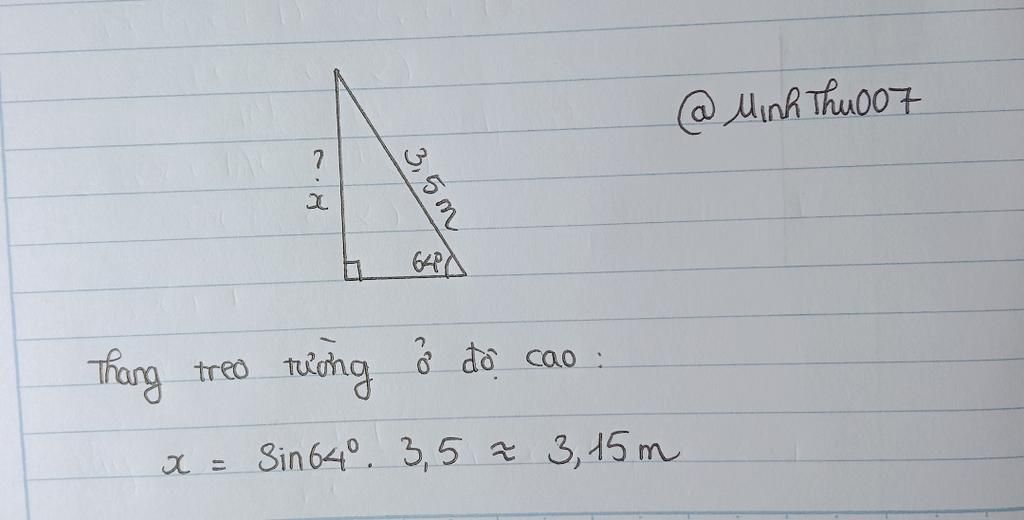 @MinhThu007
?
x
3,5m
64°
Thang treo tường ở độ cao :
x = Sin64°. 3,5 ≈ 3,15m